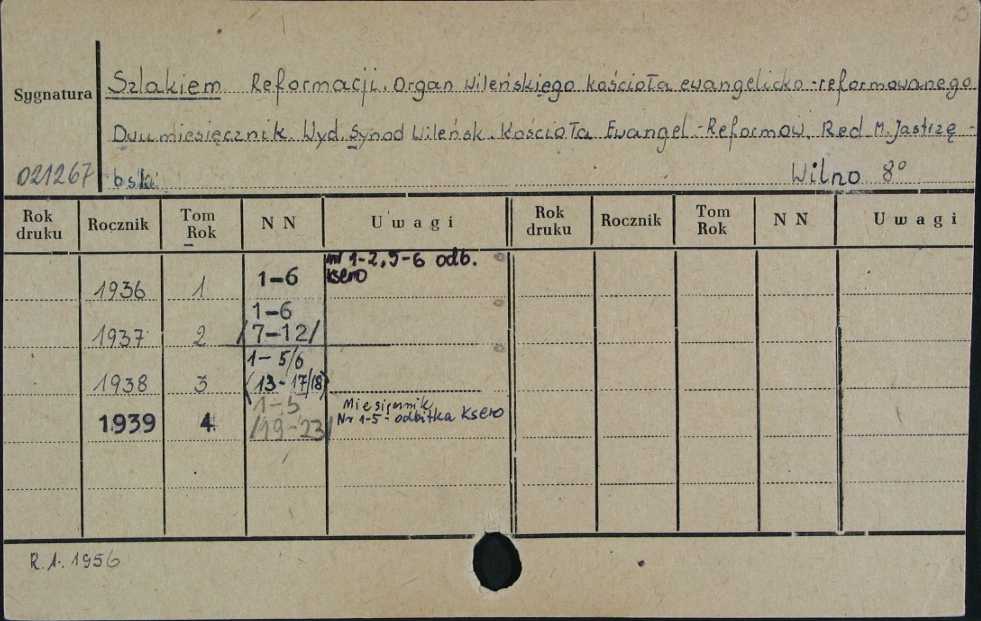 Sygnatura
021267
Szlakiem Reformacji. Organ Wileńskiego kościoła ewangelicko-reformowanego
Dwumiesięcznik. Wyd. Synod Wileńsk. Kościoła Ewangel.-Reformow. Red. M. Jastrzę-
bski. Wilno 8°
Rok druku Rocznik Tom Rok N N Uwagi Rok druku Rocznik Tom Rok N N Uwagi
1936 1 1-6 nr 1-2, 5-6 odb. ksero
1937 2 1-6 /7-12/
1938 3 1-5/6 (13-17/18)
1939 4 1-5 /19-23/ Miesięcznik Nr 1-5 - odbitka Ksero
R. 1. 1956